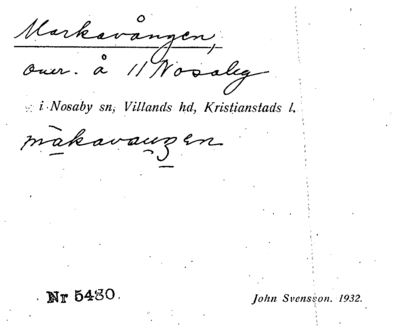 Markavången,
över. å 11 Nosaby
i Nosaby sn, Villands hd, Kristianstads l.
màkavauʒen
Nr 5480.
John Svensson. 1932.